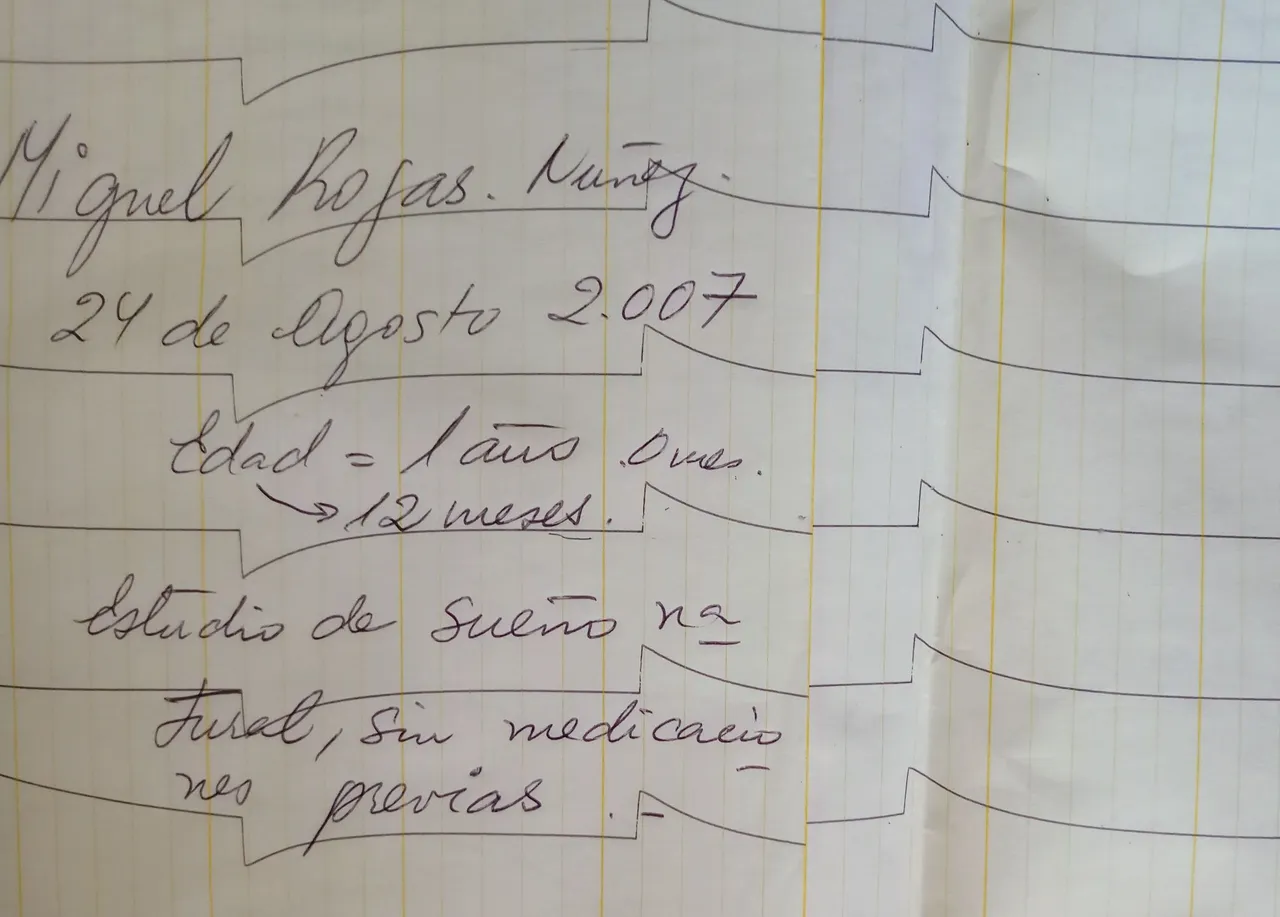 Miguel Rojas. Nuñez.
24 de Agosto 2.007
Edad = 1 año . 0 mes.
→ 12 meses.
Estudio de Sueño na
tural, sin medicacio
nes previas . -